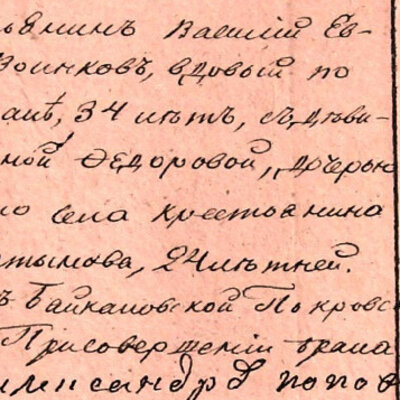 ьянинъ Василій Ев-
Воинковъ, вдовый по
акѣ, 34 лѣтъ, съ дѣви-
ной Ѳедоровой, дочерью
го села крестьянина
тымова, 24 лѣтней.
ъ Байкаловской Покровс
При совершеніи брака
лександръ Попов